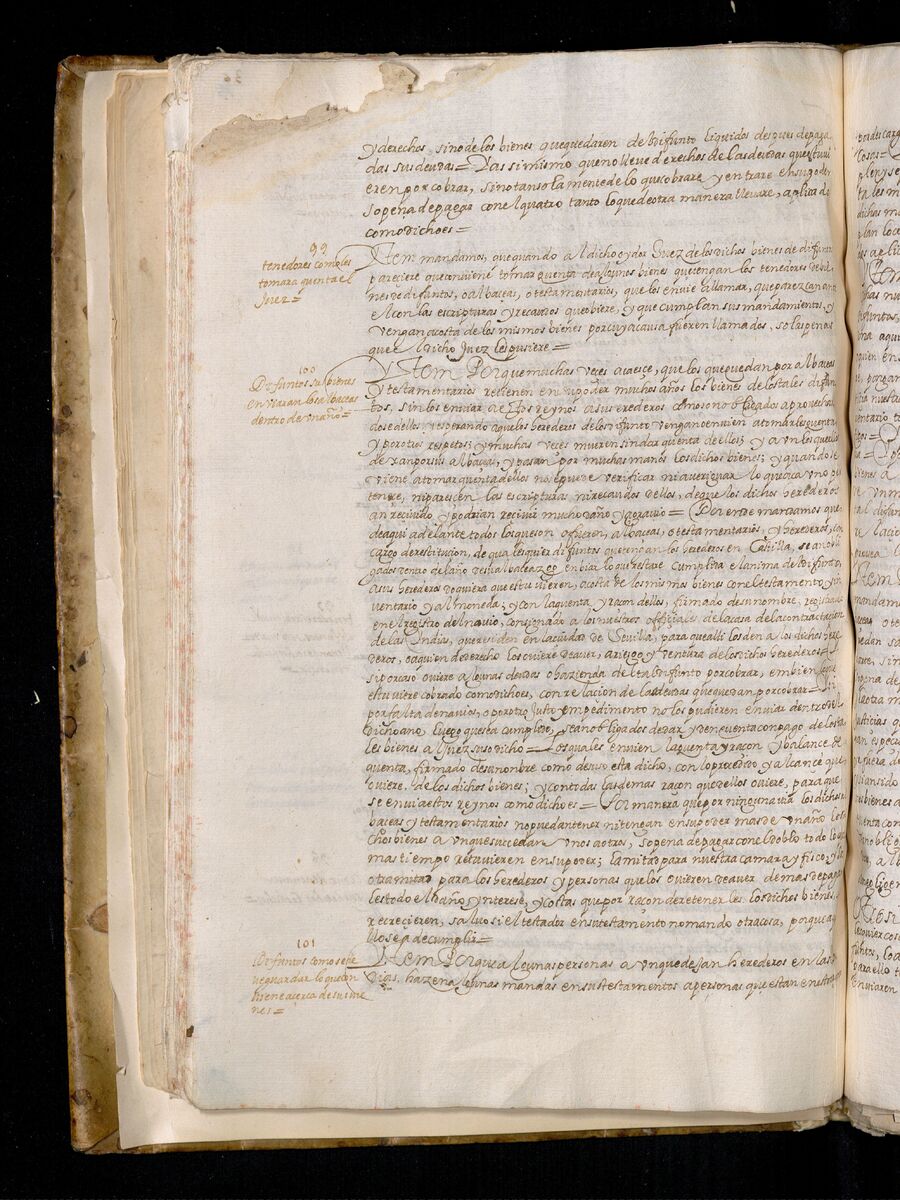 y derechos, sino de los bienes que quedaren del difunto liquidos despues de paga
das sus deudas = Y assi mismo que no lleve derechos de las deudas que estuvi
eren por cobrar, sino tan solamente de lo que cobrare y entrare en su poder
so pena de pagar con el quatro tanto lo que de otra manera llevare, aplicado
como dicho es =
99
tenedores como les
tomara quenta el
Juez =
Item mandamos, que quando al dicho oydor Juez de los dichos bienes de difuntos
pareçiere que conviene tomar quenta de algunos bienes que tengan los tenedores de bie
nes de difuntos, o albaceas, o testamentarios, que los envie a llamar, que parezcan ante
el con las escripturas y recavdos que oviere, y que cumplan sus mandamientos, y
vengan a costa de los mismos bienes por cuya causa fueren llamados, so las penas
que el dicho Juez les pusiere =
100
Difuntos sus bienes
enviaran los albaceas
dentro de un año =
Y tem Porque muchas veces acaesce, que los que quedan por albaceas
y testamentarios retienen en su poder muchos años los bienes de los tales difun
tos, sin los enviar a estos reynos a sus erederos como son obligados aprovechan
dose dellos y esperando a que los herederos de los difuntos vengan o envien a tomarles quenta
y por otros respetos; y muchas veces mueren sin dar quenta de ellos; y aun los que ellos
dexan por sus albaceas, y pasan por muchas manos los dichos bienes; y quando se
viene a tomar quenta dellos no se puede verificar ni averiguar lo que a cada uno per
tenece, ni parescen las escripturas ni recaudos dellos, de que los dichos herederos
an recivido y podrian recivir mucho daño y agravio = Por ende mandamos que
de aqui adelante todos los que son o fueren, albaceas, o testamentarios, y herederos, con
cargo de restitucion, de qualesquier difuntos que tengan los herederos en Castilla, sean obli
gados dentro del año de su albaceazgo enbiar lo que restare cumplida el anima del difunto,
a sus herederos doquiera que estuvieren, a costa de los mismos bienes con el testamento y in
ventario y almoneda, y con la quenta, y racon dellos, firmado de su nombre, registrado
en el registro del navio, consignado a los nuestros officiales de la casa de la contractacion
de las Indias, que residen en la ciudad de Sevilla, para que alli los den a los dichos here
deros, o a quien de derecho los oviere de aver, a riesgo y ventura de los dichos herederos = Y
si por caso oviere algunas deudas o hazienda del tal difunto por cobrar, embien lo que
estuviere cobrado como dicho es, con relacion de las deudas que quedan por cobrar = Y si
por falta de navios, o por otro justo ympedimento no los pudieren enviar dentro del
dicho año, luego que sea cumplido, sean obligados de dar, y den cuenta con pago de los ta
les bienes al Juez suso dicho = Los quales envien la quenta y racon y balance de
quenta, firmado de su nonbre como de suso esta dicho, con lo procedido y alcançe que
oviere de los dichos bienes; y con todas las demas racon que dellos oviere, para que
se envi a estos reynos como dicho es = Por manera que por ninguna via los dichos al
baceas y testamentarios no puedan tener ni tengan en su poder mas de un año los di
chos bienes aunque sucedan unos a otros, so pena de pagar con el doblo todo lo que
mas tiempo retuvieren en su poder; la mitad para nuestra camara y fisco, y la
otra mitad para los herederos y personas que los ovieren de aver, demas de pagar
les todo el daño, ynterese, y costas que por racon de retener les los dichos bienes
recreçieren, salvo si el testador en su testamento no mando otra cosa, porque aque
llo se a de cumplir =
101
Difuntos como se a
de guardar lo que con
biene açerca de sus bie
nes =
Item Porque algunas personas aunque dejan herederos en las In
dias, hazen algunas mandas en sus testamentos a personas que estan en estos